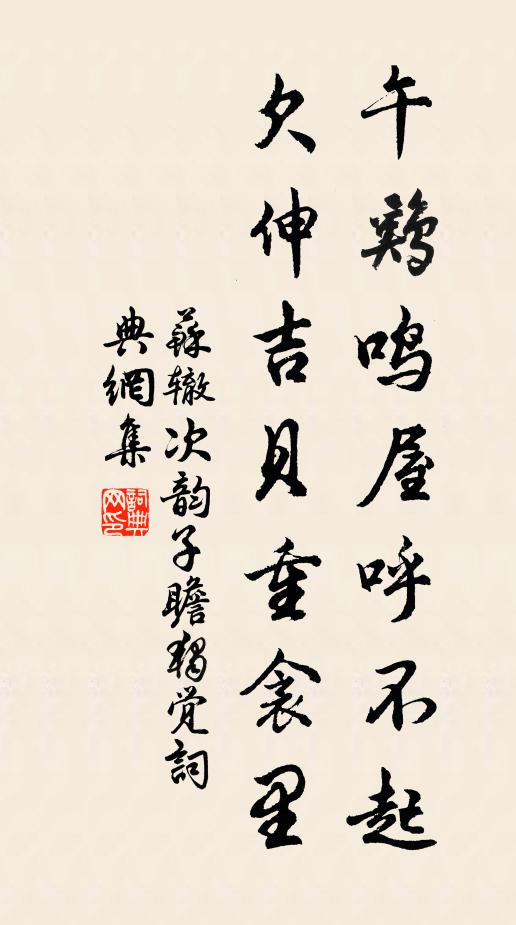 午鷄鳴屋呼不起
欠伸吉貝重衾里
蘇辙次韵子瞻獨觉詞
典網集
詞典
网印